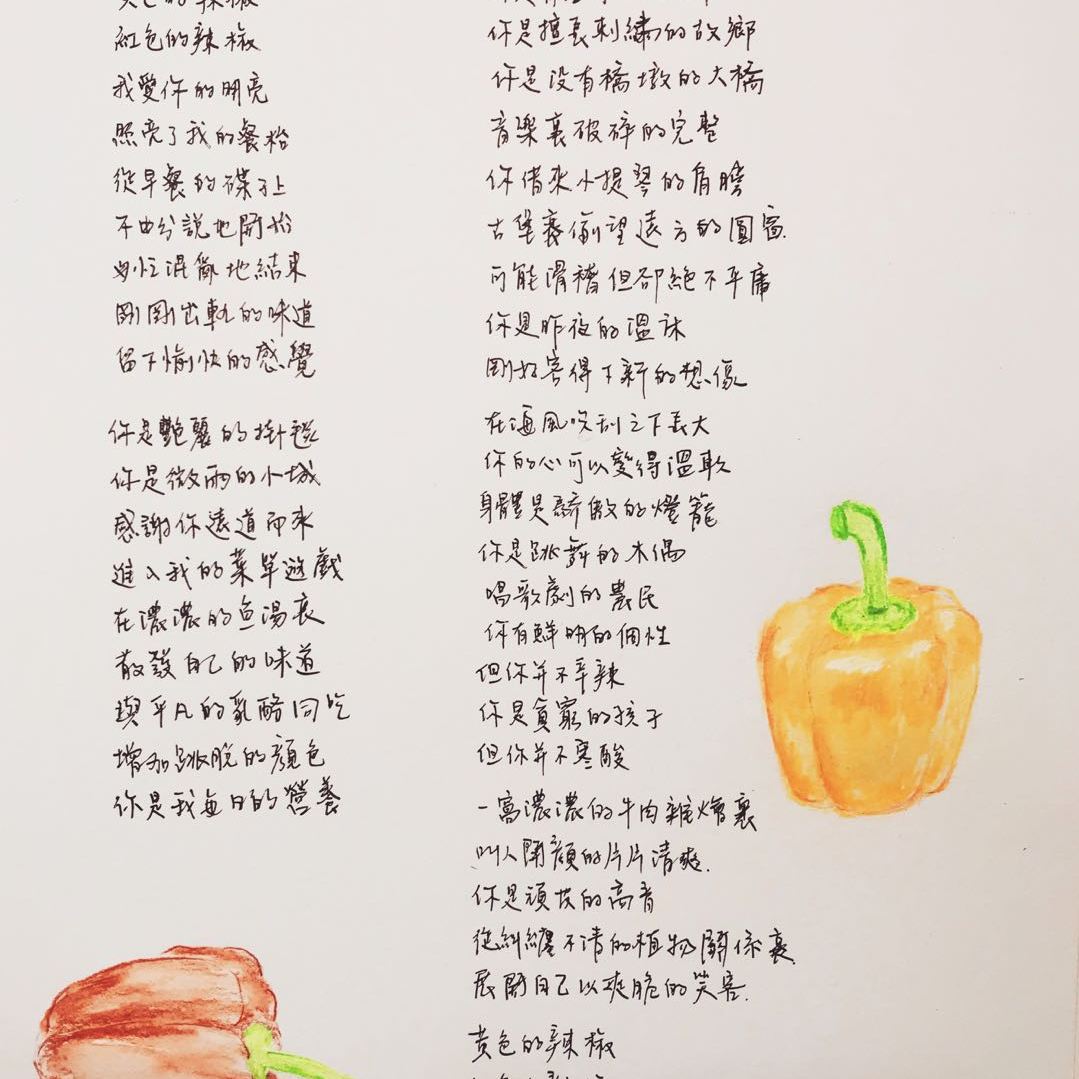 黃色的辣椒
紅色的辣椒
我愛你的明亮
照亮了我的餐枱
從早餐的碟子上
不由分說地開始
匆忙混亂地結束
剛剛出軌的味道
留下愉快的感覺
你是艷麗的掛毯
你是微雨的小城
感謝你遠道而來
進入我的菜單遊戲
在濃濃的魚湯裏
散發自己的味道
與平凡的乳酪同吃
增加跳脫的顏色
你是我每日的營養
你是擅長刺繡的故鄉
你是沒有橋墩的大橋
音樂裏破碎的完整
你借來小提琴的肩膀
古堡裏偷望遠方的圓窗
可能滑稽但卻絕不平庸
你是昨夜的溫牀
剛好容得下新的想像
在海風吹刮之下長大
你的心可以變得溫軟
身體是謙敬的燈籠
你是跳舞的木偶
唱歌劇的農民
你有鮮明的個性
但你并不辛辣
你是貧窮的孩子
但你并不寒酸
一窩濃濃的牛肉雜燴裏
叫人開顏的片片清爽
你是頑皮的高音
從糾纏不清的植物關係裏
展開自己以爽脆的笑容
黃色的辣椒